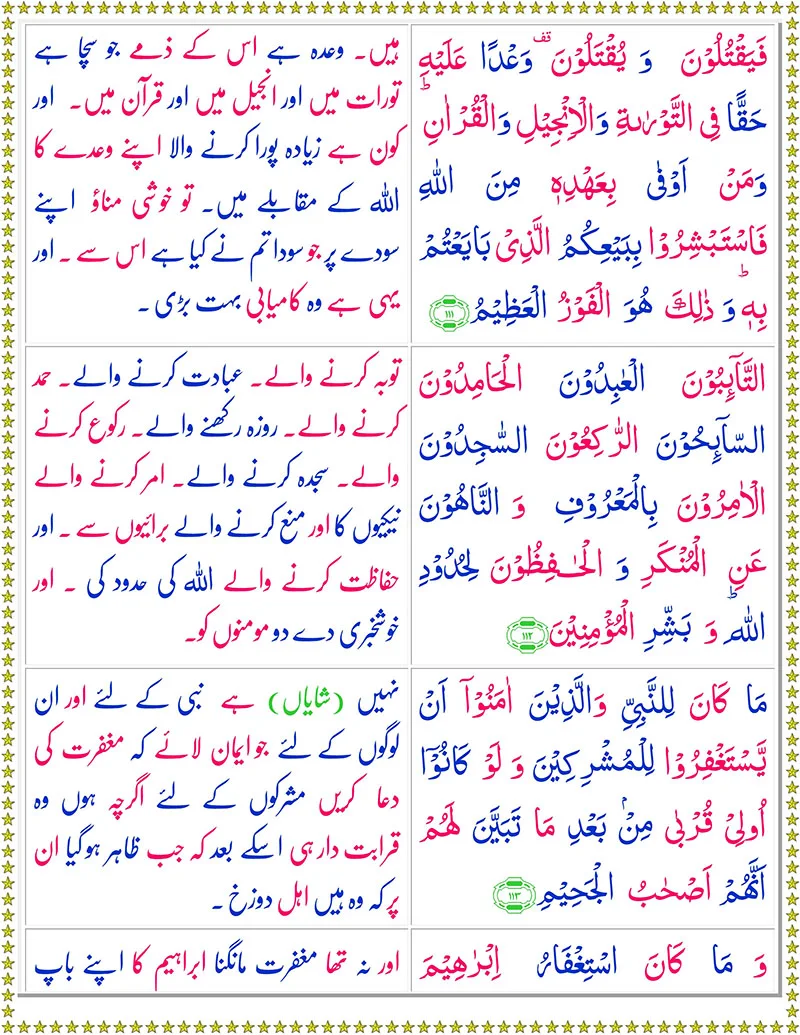 فَيَقْتُلُوْنَ وَ يُقْتَلُوْنَ ۫ وَعْدًا عَلَيْهِ
حَقًّا فِي التَّوْرٰىةِ وَالْاِنْجِيْلِ وَالْقُرْاٰنِ ؕ
وَمَنْ اَوْفٰى بِعَهْدِهٖ مِنَ اللّٰهِ
فَاسْتَبْشِرُوْا بِبَيْعِكُمُ الَّذِيْ بَايَعْتُمْ
بِهٖ ؕ وَ ذٰلِكَ هُوَ الْفَوْزُ الْعَظِيْمُ ۱۱۱
ہیں۔ وعدہ ہے اس کے ذمے جو سچا ہے
تورات میں اور انجیل میں اور قرآن میں۔ اور
کون ہے زیادہ پورا کرنے والا اپنے وعدے کا
اللہ کے مقابلے میں۔ تو خوشی مناؤ اپنے
سودے پر جو سودا تم نے کیا ہے اس سے ۔ اور
یہی ہے وہ کامیابی بہت بڑی ۔
التَّآىِٕبُوْنَ الْعٰبِدُوْنَ الْحَامِدُوْنَ
السَّآىِٕحُوْنَ الرّٰكِعُوْنَ السّٰجِدُوْنَ
الْاٰمِرُوْنَ بِالْمَعْرُوْفِ وَ النَّاهُوْنَ
عَنِ الْمُنْكَرِ وَ الْحٰفِظُوْنَ لِحُدُوْدِ
اللّٰهِ ؕ وَ بَشِّرِ الْمُؤْمِنِيْنَ ۱۱۲
توبہ کرنے والے۔ عبادت کرنے والے۔ حمد
کرنے والے۔ روزہ رکھنے والے۔ رکوع کرنے
والے۔ سجدہ کرنے والے۔ امر کرنے والے
نیکیوں کا اور منع کرنے والے برائیوں سے ۔ اور
حفاظت کرنے والے اللہ کی حدود کی ۔ اور
خوشخبری دے دو مومنوں کو۔
مَا كَانَ لِلنَّبِيِّ وَالَّذِيْنَ اٰمَنُوْۤا اَنْ
يَّسْتَغْفِرُوْا لِلْمُشْرِكِيْنَ وَ لَوْ كَانُوْۤا
اُولِيْ قُرْبٰى مِنْۢ بَعْدِ مَا تَبَيَّنَ لَهُمْ
اَنَّهُمْ اَصْحٰبُ الْجَحِيْمِ ۱۱۳
نہیں (شایاں) ہے نبی کے لئے اور ان
لوگوں کے لئے جو ایمان لائے کہ مغفرت کی
دعا کریں مشرکوں کے لئے اگرچہ ہوں وہ
قرابت دار ہی اسکے بعد کہ جب ظاہر ہوگیا ان
پر کہ وہ ہیں اہل دوزخ ۔
وَ مَا كَانَ اسْتِغْفَارُ اِبْرٰهِيْمَ
اور نہ تھا مغفرت مانگنا ابراہیم کا اپنے باپ